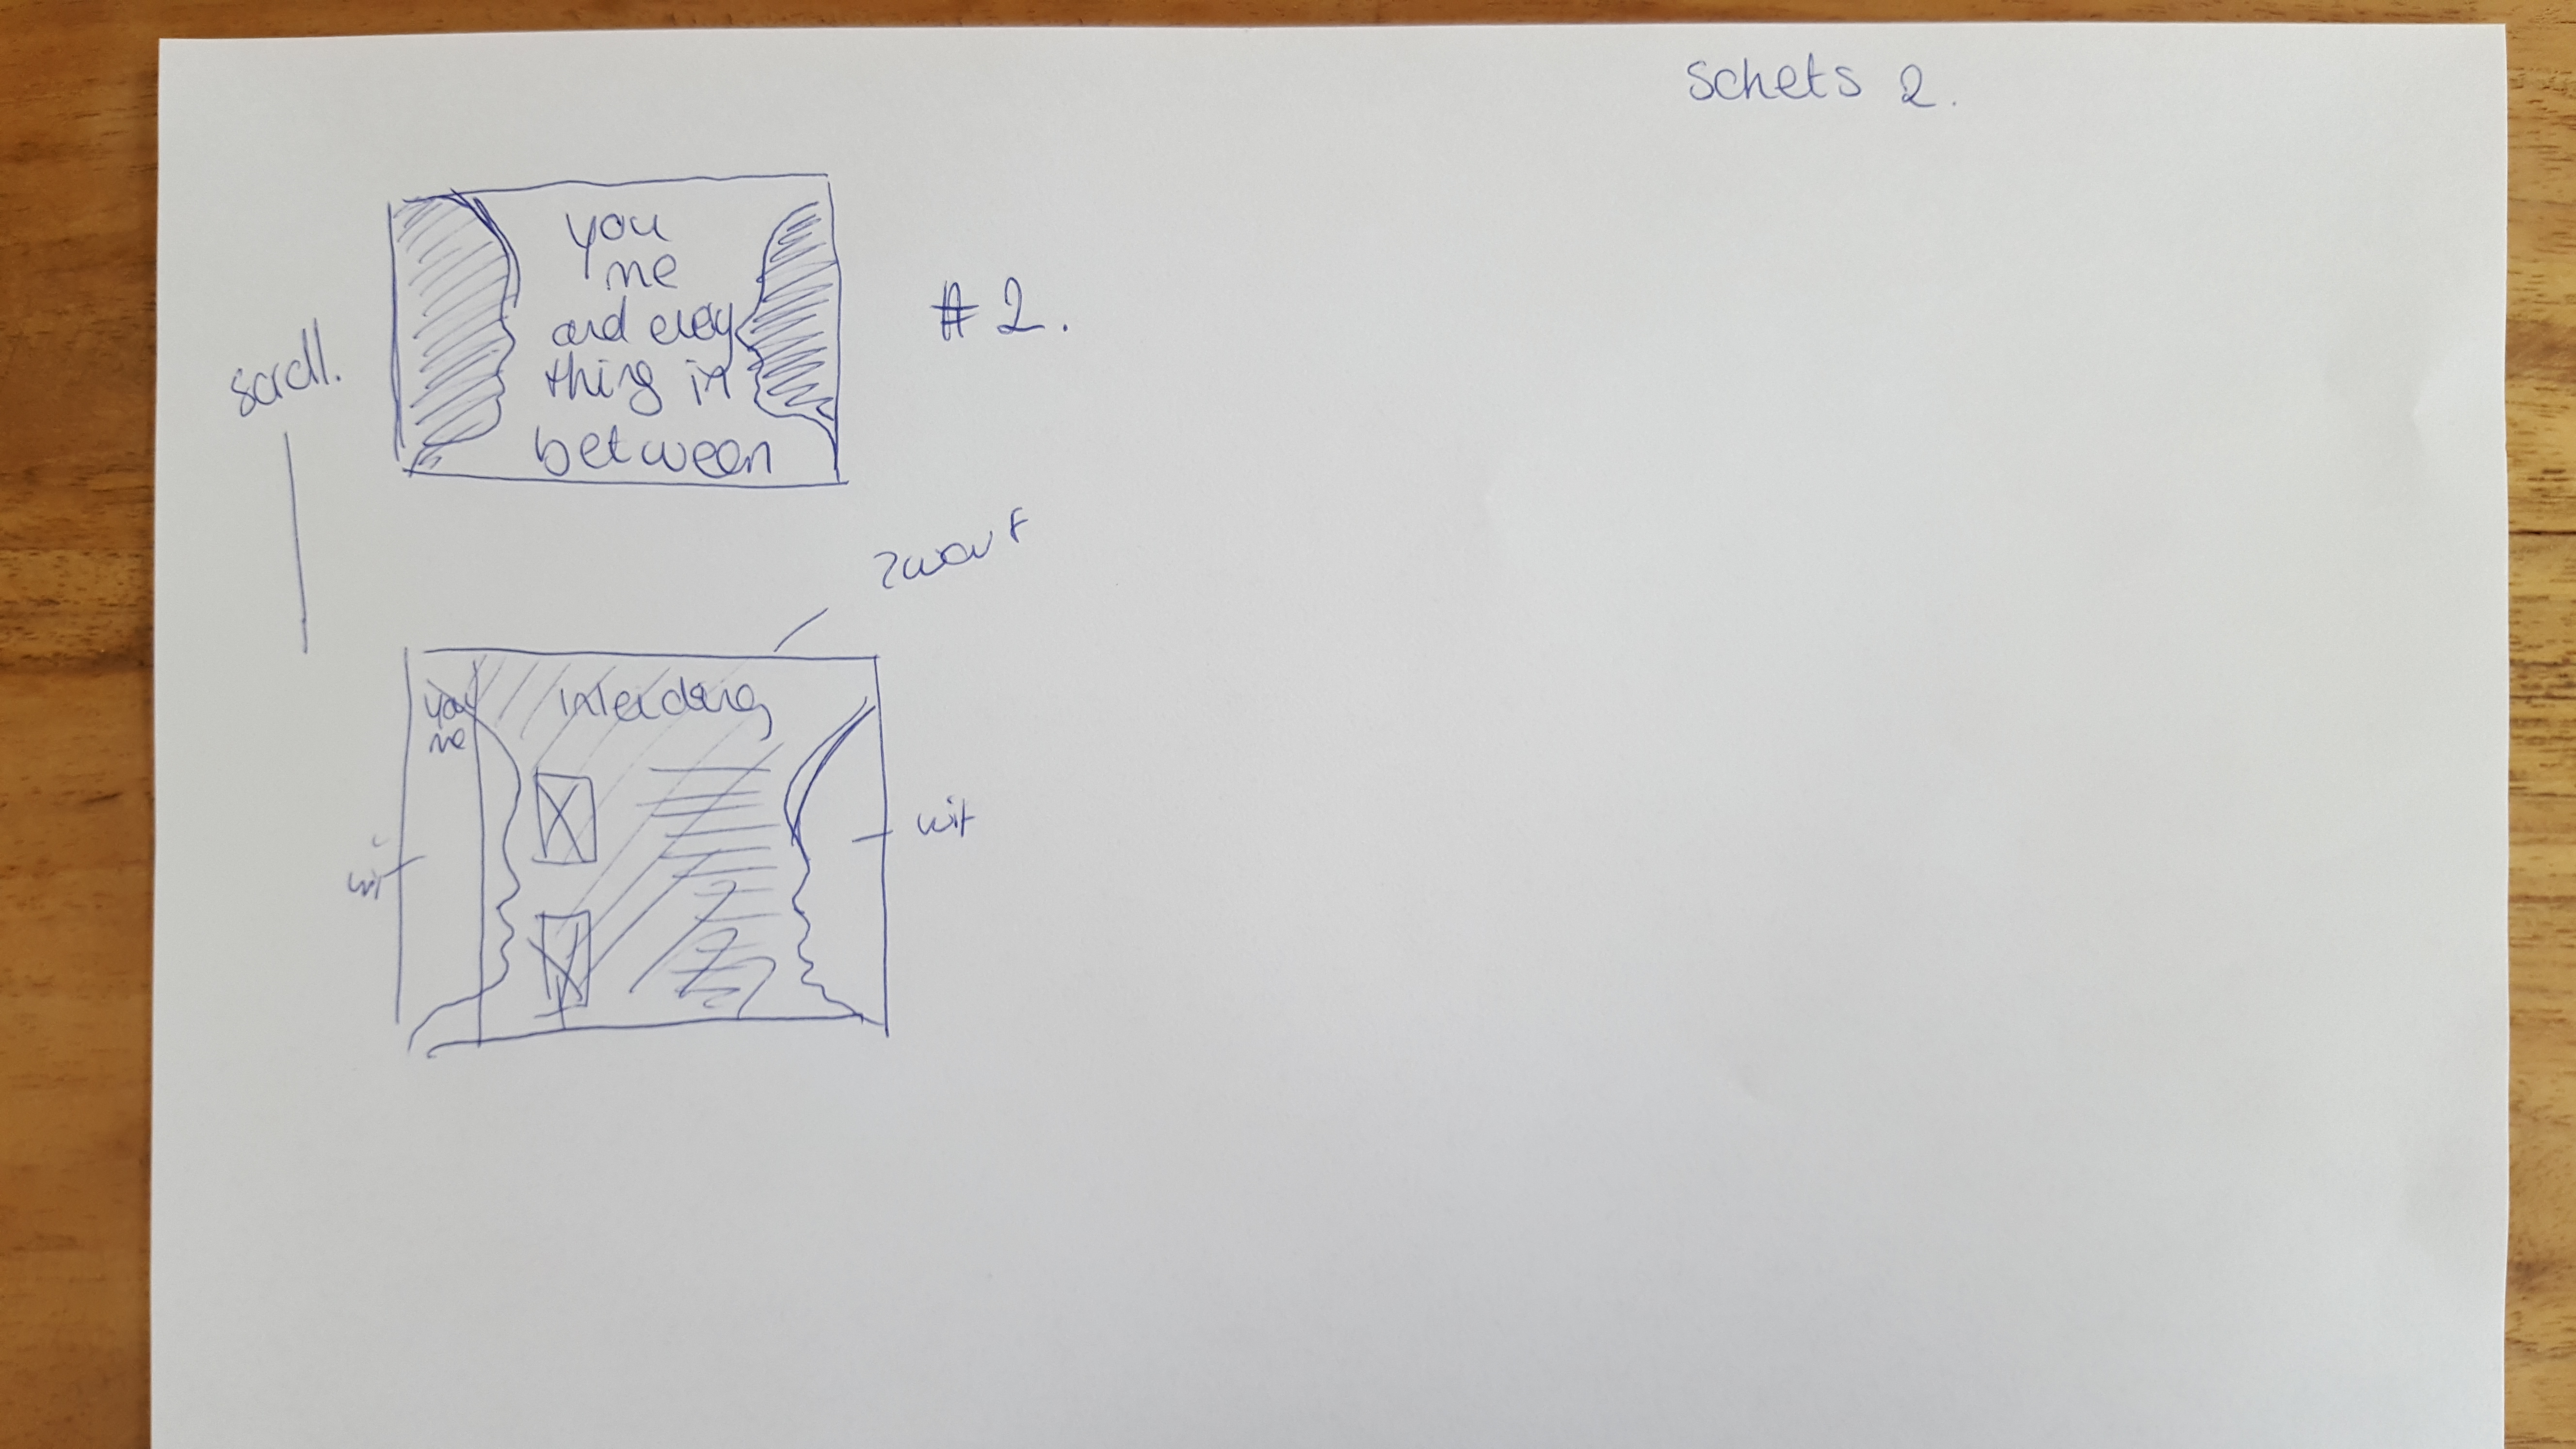 Schets 2.
#2.
you
me
and every
thing in
between
scroll.
zwart
you
me
Inleiding
wit
wit